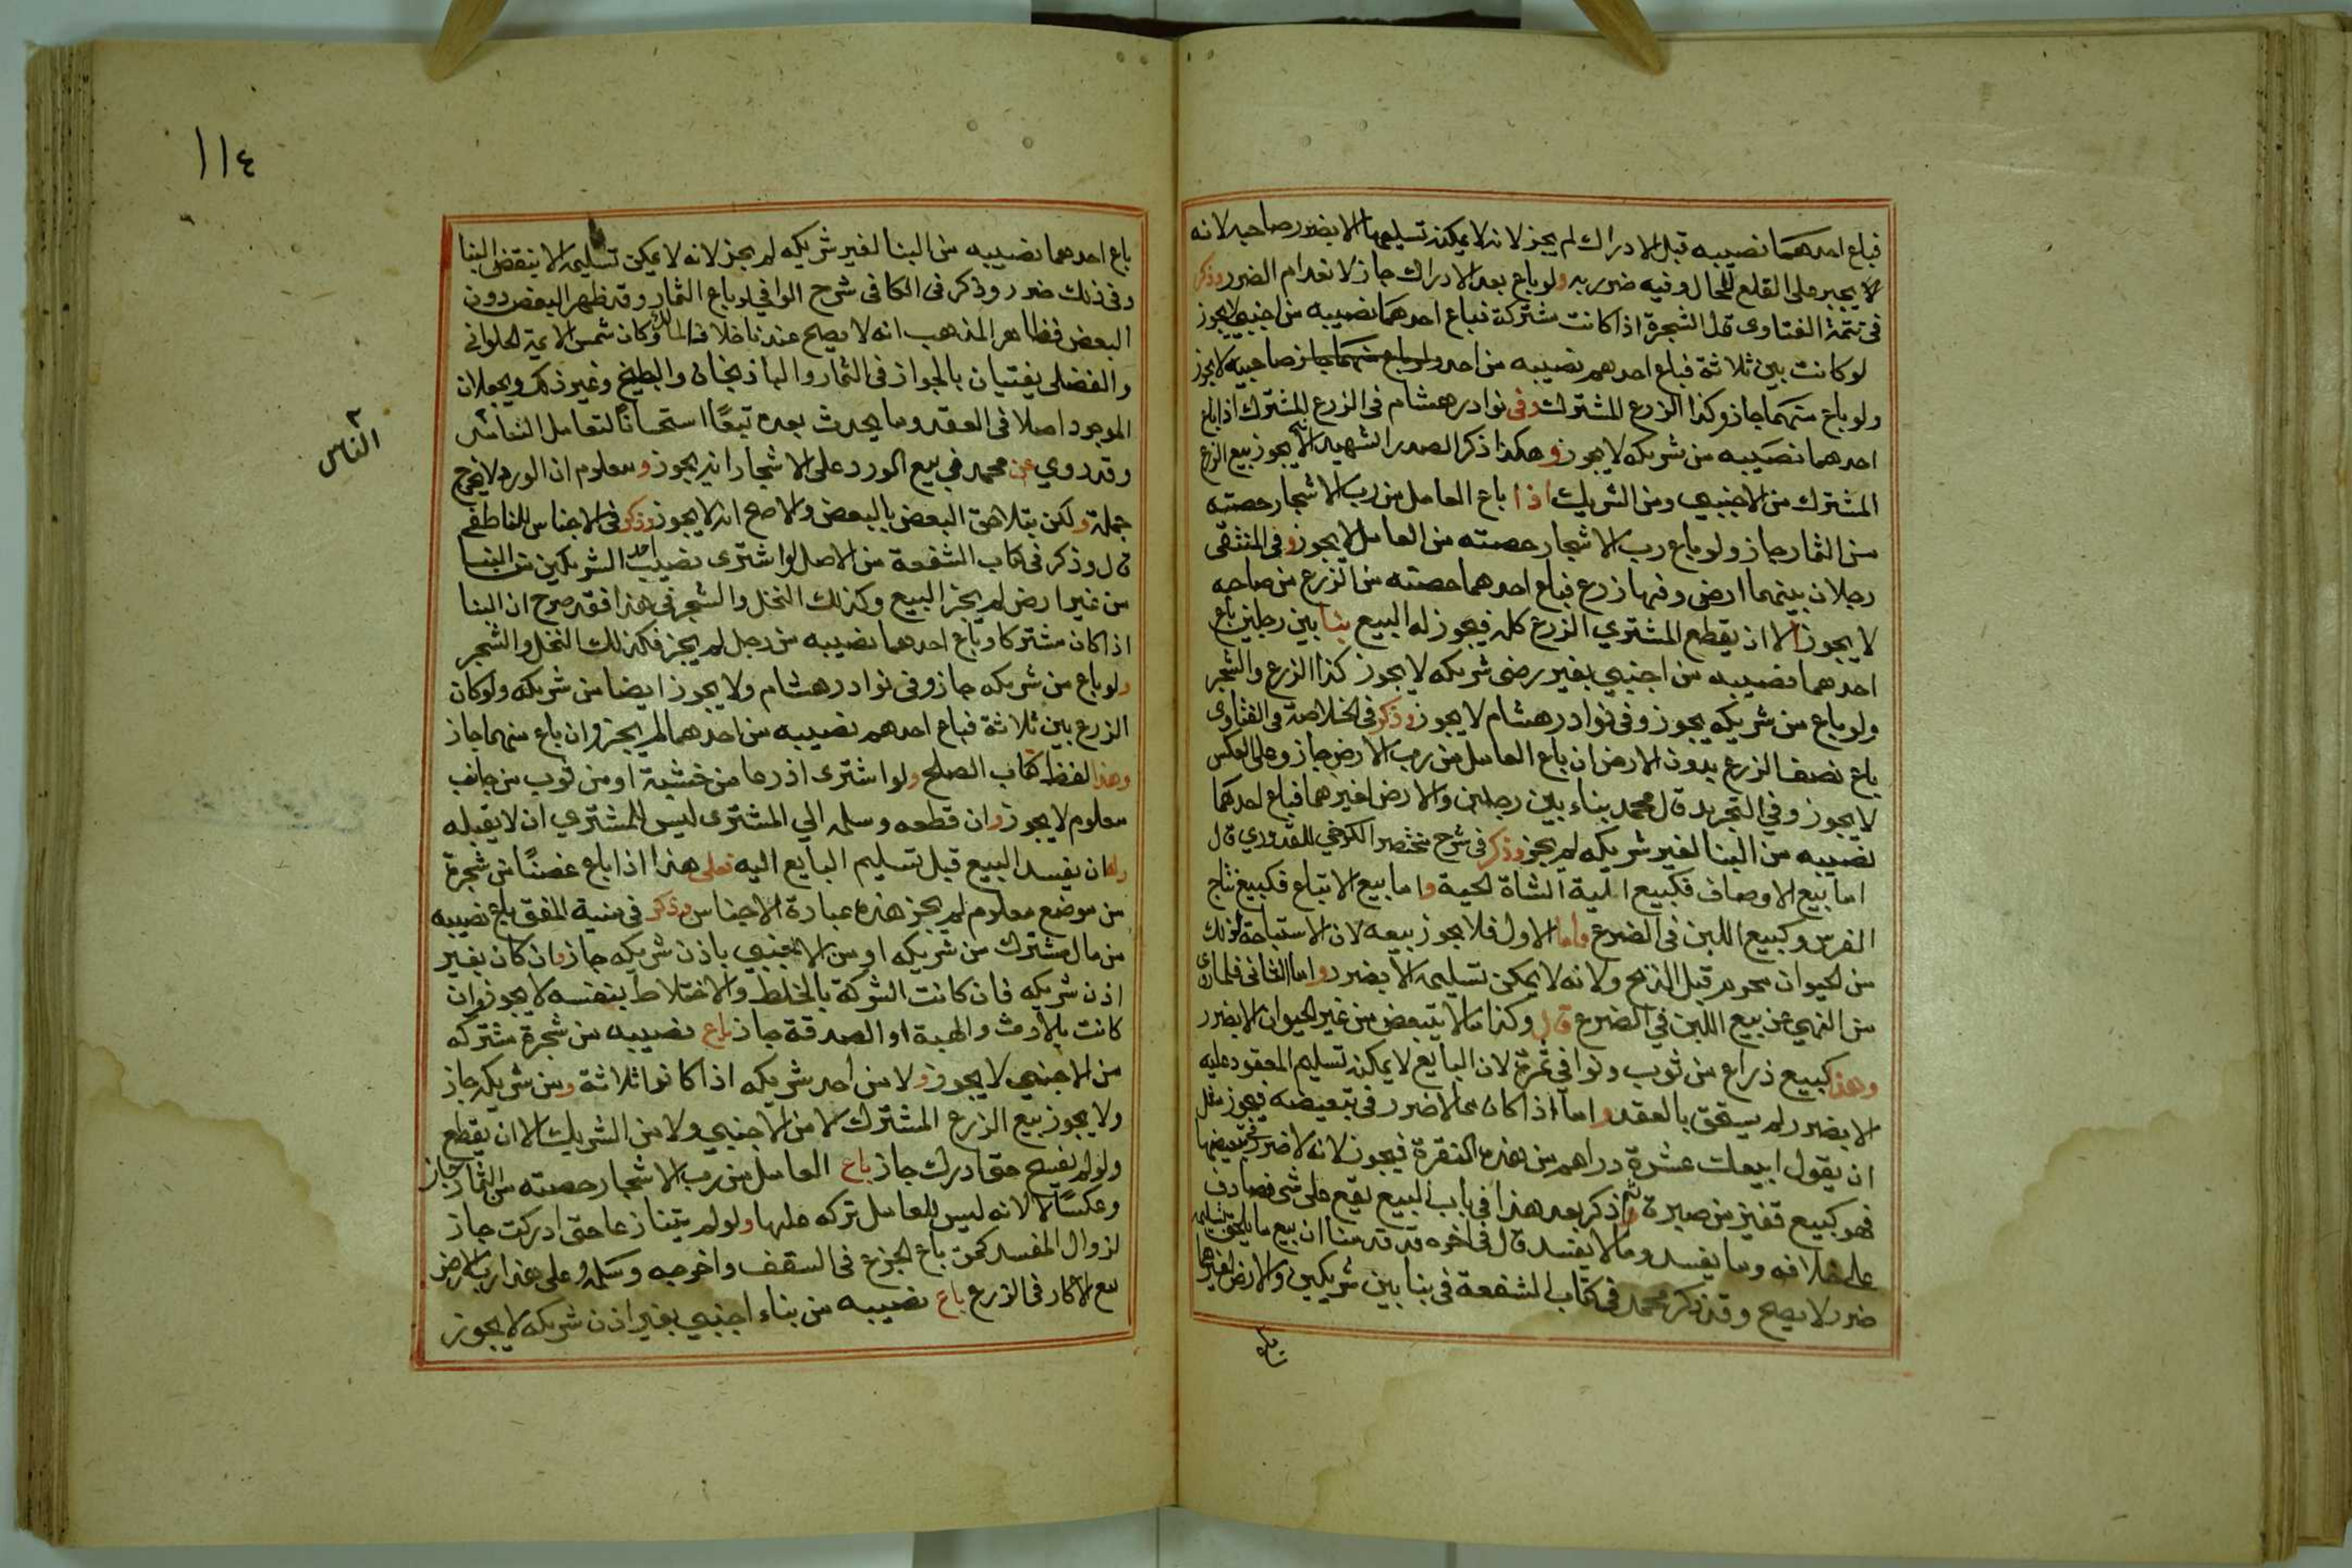 فباع احدهما نصيبه قبل الادراك لم يجز لانه لا يمكنه تسليمها الا بضرر صاحبه لانه
لا يجبر على القلع للحال وفيه ضرر به ولو باع بعد الادراك جاز لانعدام الضرر وذكر
فى تتمة الفتاوى قل الشجرة اذا كانت مشتركة فباع احدهما نصيبه من اجنبي لا يجوز
لو كانت بين ثلاثة فباع احدهم نصيبه من احد ولو باع منهما جاز صاحبيه لا يجوز
ولو باع منهما جاز وكذا الزرع المشترك وفى نوادر هشام فى الزرع المشترك اذا باع
احدهما نصيبه من شريكه لا يجوز وهكذا ذكر الصدر الشهيد لا يجوز بيع الزرع
المشترك من الاجنبي ومن الشريك اذا باع العامل من رب الاشجار حصته
من الثمار جاز ولو باع رب الاشجار حصته من العامل لا يجوز وفى المنتقى
رجلان بينهما ارض وفيها زرع فباع احدهما حصته من الزرع من صاحبه
لا يجوز الا ان يقطع المشتري الزرع كله فيجوز له البيع بنا بين رجلين باع
احدهما نصيبه من اجنبي بغير رضى شريكه لا يجوز كذا الزرع والشجر
ولو باع من شريكه يجوز وفى نوادر هشام لا يجوز وذكر فى الخلاصة فى الفتاوى
باع نصف الزرع بدون الارض ان باع العامل من رب الارض جاز وعلى العكس
لا يجوز وفي التجريد قال محمد بناء بين رجلين والارض لغيرهما فباع احدهما
نصيبه من البنا لغير شريكه لم يجز وذكر فى شرح مختصر الكرخي للقدوري قال
اما بيع الاوصاف فكبيع الية الشاة الحية واما بيع الاتباع فكبيع نتاج
الفرس وكبيع اللبن فى الضرع واما الاول فلا يجوز بيعه لان الاستباحة لذلك
من الحيوان محرم قبل الذبح ولانه لا يمكن تسليمه الا بضرر واما الثانى فلما روى
من النهي عن بيع اللبن في الضرع قال وكذا ما لا يتبعض من غير الحيوان الا بضرر
وهذا كبيع ذراع من ثوب ونوا في تمرة لان البايع لا يمكنه تسليم المعقود عليه
الا بضرر لم يستحق بالعقد واما اذا كان مما لا ضرر فى تبعيضه فيجوز مثل
ان يقول ابيعك عشرة دراهم من هذه النقرة فيجوز لانه لا ضرر فى تبعيضها
فهو كبيع قفيز من صبرة ثم ذكر بعد هذا فى باب البيع يقع على شى فصادف
على خلافه وما يفسد وما لا يفسد قال فى اخره قد قدمنا ان بيع ما يلحق تسليمه
ضرر لا يصح وقد ذكر محمد فى كتاب الشفعة فى بنا بين شريكين والارض لغيرهما
باع احدهما نصيبه من البنا لغير شريكه لم يجز لانه لا يمكن تسليمه الا بنقض البنا
وفى ذلك ضرر وذكر فى الكافى شرح الوافي لو باع الثمار وقد ظهر البعض دون
البعض فظاهر المذهب انه لا يصح عندنا خلافا لمالك وكان شمس الايمة الحلوانى
والفضلى يفتيان بالجواز فى الثمار والباذنجان والبطيخ وغير ذلك ويجعلان
الموجود اصلا فى العقد وما يحدث بعده تبعًا استحسانًا لتعامل الناس
الناس
وقد روي عن محمد فى بيع الورد على الاشجار انه يجوز ومعلوم ان الورد لا يخرج
جملة ولكن يتلاحق البعض بالبعض والاصح انه لا يجوز وذكر فى الاجناس للناطفى
قال وذكر فى كتاب الشفعة من الاصل لو اشترى نصيب احد الشريكين من البنا
من غير ارض لم يجز البيع وكذلك النخل والشجر فى هذا فقد صرح ان البنا
اذا كان مشتركا وباع احدهما نصيبه من رجل لم يجز فكذلك النخل والشجر
ولو باع من شريكه جاز وفى نوادر هشام ولا يجوز ايضا من شريكه ولو كان
الزرع بين ثلاثة فباع احدهم نصيبه من احدهما لم يجز وان باع منهما جاز
وهذا لفظ كتاب الصلح ولو اشترى اذرعا من خشبة او من ثوب من جانب
معلوم لا يجوز وان قطعه وسلمه الي المشترى ليس للمشتري ان لا يقبله
وله ان يفسد البيع قبل تسليم البايع اليه فعلى هذا اذا باع غصنًا من شجرة
من موضع معلوم لم يجز هذه عبارة الاجناس وذكر فى منية المفتى باع نصيبه
من مال مشترك من شريكه او من الاجنبي باذن شريكه جاز وان كان بغير
اذن شريكه فان كانت الشركة بالخلط والاختلاط بنفسه لا يجوز وان
كانت بالارث والهبة او الصدقة جاز باع نصيبه من شجرة مشتركه
من الاجنبي لا يجوز ولا من احد شريكه اذا كانوا ثلاثة ومن شريكه جاز
ولا يجوز بيع الزرع المشترك لا من الاجنبي ولا من الشريك الا ان يقطع
ولو لم يفسخ حتى ادرك جاز باع العامل من رب الاشجار حصته من الثمار جاز
وعكسًا لا لانه ليس للعامل تركه عليها ولو لم يتنازعا حتى ادركت جاز
لزوال المفسد كمن باع الجزع فى السقف واخرجه وسلمه وعلى هذا رب الارض
مع الاكار فى الزرع باع نصيبه من بناء اجنبي بغير اذن شريكه لا يجوز
١١٤